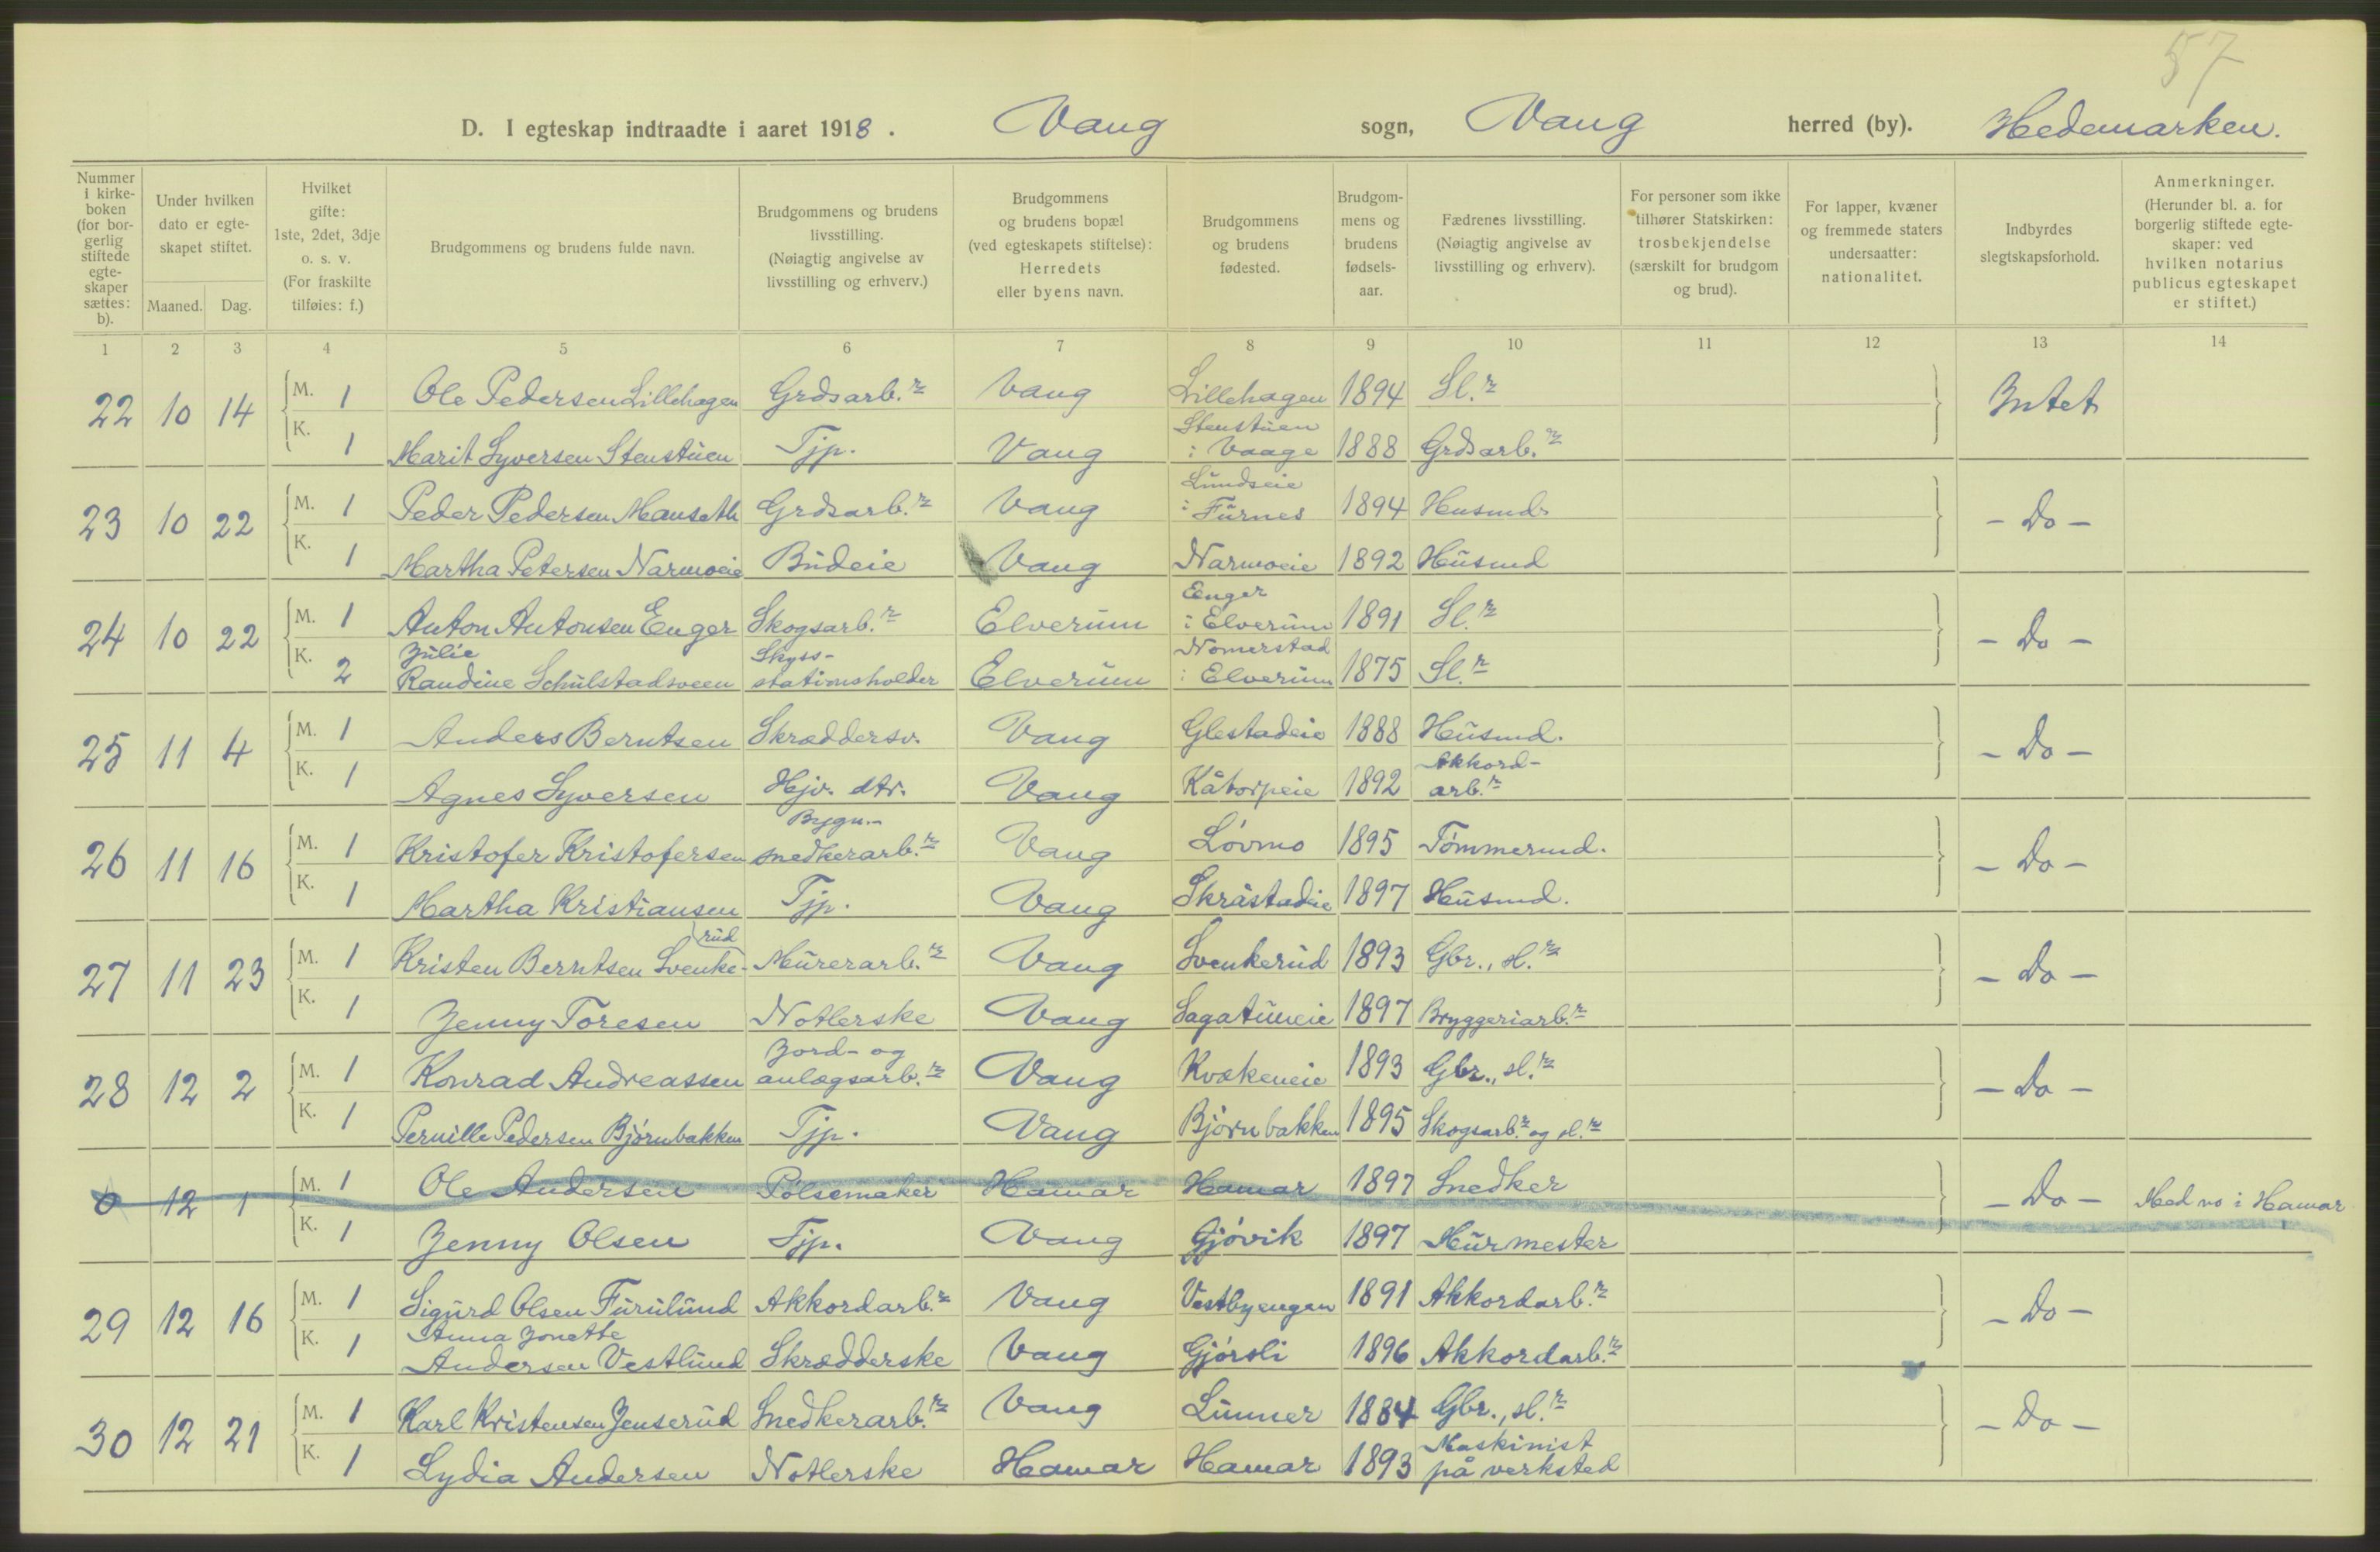 57
D. I egteskap indtraadte i aaret 1918. Vang sogn, Vang herred (by). Hedemarken.
Nummer i kirkeboken (for borgerlig stiftede egteskaper sættes: b).
Under hvilken dato er egteskapet stiftet.
Maaned. Dag.
Hvilket gifte: 1ste, 2det, 3dje o. s. v. (For fraskilte tilføies: f.)
Brudgommens og brudens fulde navn.
Brudgommens og brudens livsstilling. (Nøiagtig angivelse av livsstilling og erhverv.)
Brudgommens og brudens bopæl (ved egteskapets stiftelse): Herredets eller byens navn.
Brudgommens og brudens fødested.
Brudgommens og brudens fødselsaar.
Fædrenes livsstilling. (Nøiagtig angivelse av livsstilling og erhverv).
For personer som ikke tilhører Statskirken: trosbekjendelse (særskilt for brudgom og brud).
For lapper, kvæner og fremmede staters undersaatter: nationalitet.
Indbyrdes slegtskapsforhold.
Anmerkninger. (Herunder bl. a. for borgerlig stiftede egteskaper: ved hvilken notarius publicus egteskapet er stiftet.)
1 2 3 4 5 6 7 8 9 10 11 12 13 14
22 10 14 M. 1 Ole Pedersen Lillehagen Grdsarb.r Vang Lillehagen 1894 Sl.r Intet
K. 1 Marit Syversen Stenstuen Tjp. Vang Stenstuen i Vaage 1888 Grdsarb.r
23 10 22 M. 1 Peder Pedersen Manseth Grdsarb.r Vang Lundseie i Furnes 1894 Husmd. - Do -
K. 1 Martha Petersen Narmoeie Budeie Vang Narmoeie 1892 Husmd
24 10 22 M. 1 Anton Antonsen Enger Skogsarb.r Elverum Enger i Elverum 1891 Sl.r - Do -
K. 2 Julie Randine Schulstadsveen Skyss-stationsholder Elverum Nomerstad i Elverum 1875 Sl.r
25 11 4 M. 1 Anders Berntsen Skræddersv. Vang Glestadeie 1888 Husmd. - Do -
K. 1 Agnes Syversen Hjv. dtr. Vang Kåtorpeie 1892 Akkord-arb.r
26 11 16 M. 1 Kristofer Kristofersen Bygn.-snedkerarb.r Vang Løvmo 1895 Tømmermd. - Do -
K. 1 Martha Kristiansen Tjp. Vang Skråstadeie 1897 Husmd.
27 11 23 M. 1 Kristen Berntsen Svenke-rud Murerarb.r Vang Svenkerud 1893 Gbr., sl.r - Do -
K. 1 Jenny Toresen Notlerske Vang Sagatuneie 1897 Bryggeriarb.r
28 12 2 M. 1 Konrad Andreassen Jord- og anlægsarb.r Vang Kvækeneie 1893 Gbr., sl.r - Do -
K. 1 Pernille Pedersen Bjørnbakken Tjp. Vang Bjørnbakken 1895 Skogsarb.r og sl.r
0 12 1 M. 1 Ole Andersen Pølsemaker Hamar Hamar 1897 Snedker - Do - Med no i Hamar
K. 1 Jenny Olsen Tjp. Vang Gjøvik 1897 Murmester
29 12 16 M. 1 Sigurd Olsen Furulund Akkordarb.r Vang Vestbyengen 1891 Akkordarb.r - Do -
K. 1 Anna Jonette Andersen Vestlund Skrædderske Vang Gjørsli 1896 Akkordarb.r
30 12 21 M. 1 Karl Kristensen Jenserud Snedkerarb.r Vang Lunner 1884 Gbr., sl.r - Do -
K. 1 Lydia Andersen Notlerske Hamar Hamar 1893 Maskinist på verksted